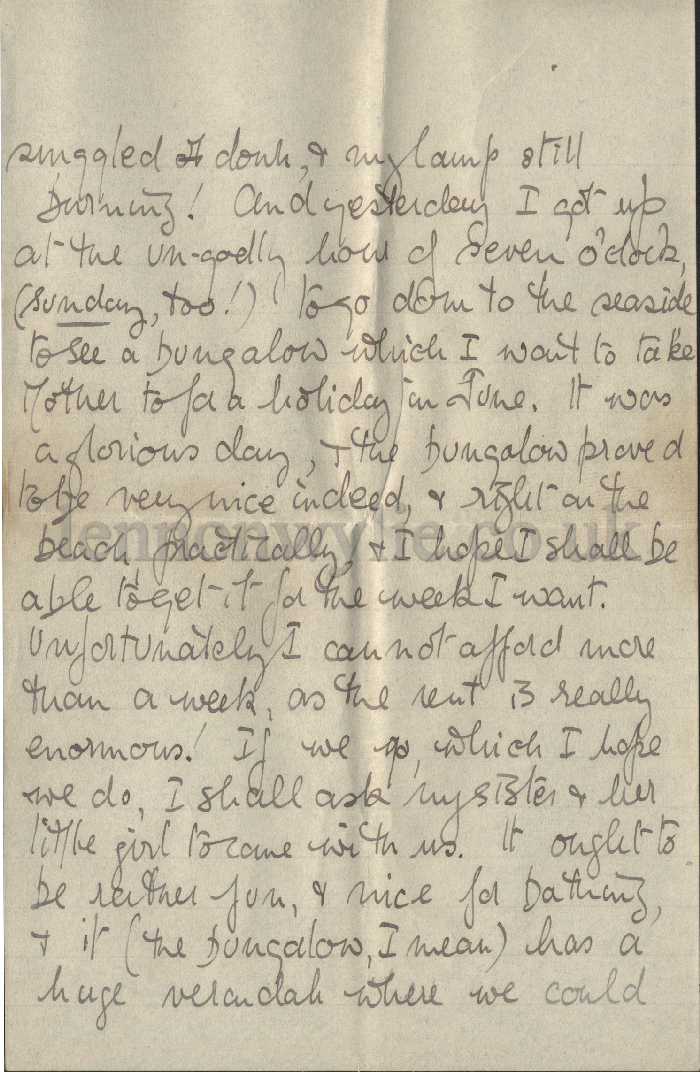 snuggled down, & my lamp still
burning! And yesterday I got up
at the un-godly hour of seven o'clock,
(Sunday, too!) to go down to the seaside
to see a bungalow which I want to take
Mother to for a holiday in June. It was
a glorious day, & the bungalow proved
to be very nice indeed, & right on the
beach practically, & I hope I shall be
able to get it for the week I want.
Unfortunately I cannot afford more
than a week, as the rent is really
enormous! If we go, which I hope
we do, I shall ask my sister & her
little girl to come with us. It ought to
be rather fun, & nice for bathing,
& it (the bungalow, I mean) has a
huge verandah where we could
lennonwylie.co.uk